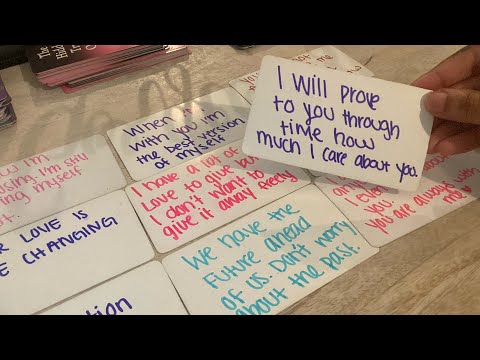 The
I Will prove
to you through
time how
much I care about you.
me
When
with you I'm
the best version
of myself
now I'm
I'm still
myself
I have a lot of
Love to give but
I don't want to
give it away freely
you.
you are always with
me
LOVE IS
CHANGING
We have the
Future ahead
of us. Don't worry
about the past.